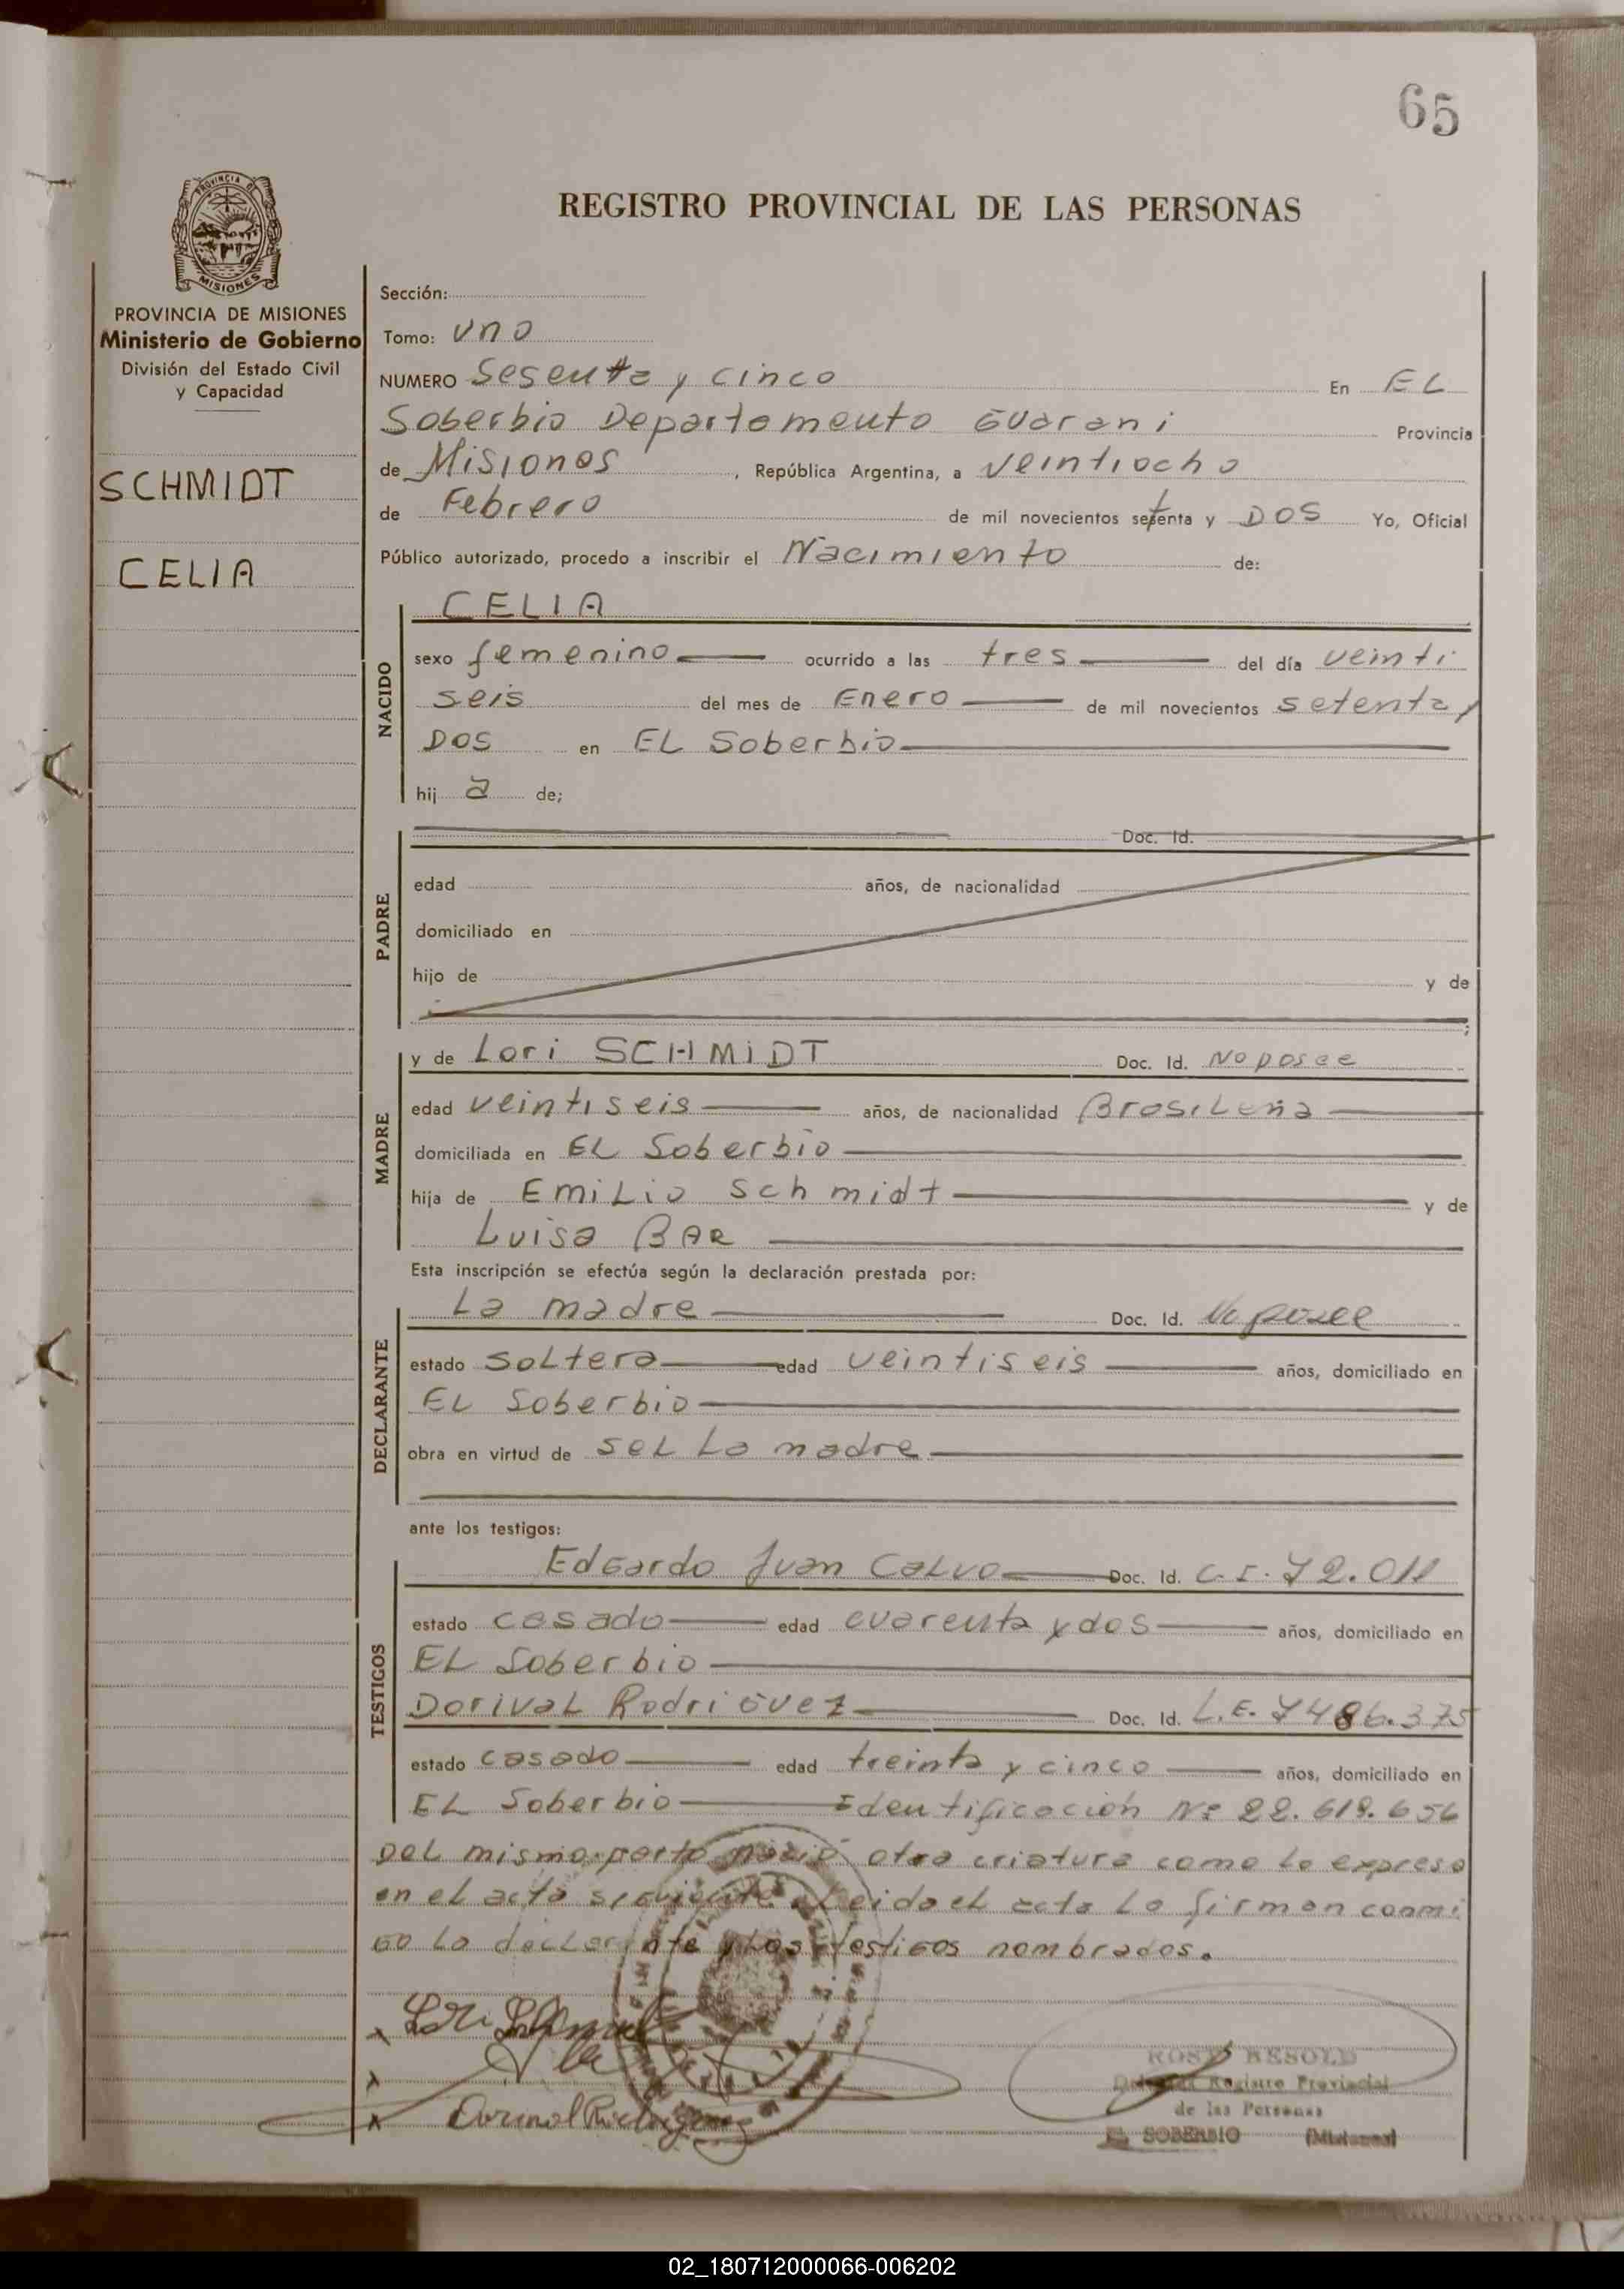 65
PROVINCIA DE
MISIONES
REGISTRO PROVINCIAL DE LAS PERSONAS
PROVINCIA DE MISIONES
Ministerio de Gobierno
División del Estado Civil
y Capacidad
SCHMIDT
CELIA
Sección:
Tomo: uno
NUMERO Sesenta y cinco En EL
Soberbio Departamento Guarani Provincia
de Misiones, República Argentina, a veintiocho
de Febrero de mil novecientos setenta y DOS Yo, Oficial
Público autorizado, procedo a inscribir el Nacimiento de:
NACIDO
CELIA
sexo femenino ocurrido a las tres del día veinti
seis del mes de Enero de mil novecientos setenta y
DOS en EL Soberbio
hij a de;
PADRE
Doc. Id.
edad años, de nacionalidad
domiciliado en
hijo de y de
;
MADRE
y de Lori SCHMIDT Doc. Id. No posee
edad veintiseis años, de nacionalidad Brasileña
domiciliada en EL Soberbio
hija de Emilio Schmidt y de
Luisa BAR
Esta inscripción se efectúa según la declaración prestada por:
DECLARANTE
La madre Doc. Id. No posee
estado soltera edad veintiseis años, domiciliado en
EL Soberbio
obra en virtud de ser La madre
ante los testigos:
TESTIGOS
Edgardo Juan Calvo Doc. Id. C.I. 72.011
estado casado edad cuarenta y dos años, domiciliado en
EL Soberbio
Dorival Rodriguez Doc. Id. L.E. 7486.375
estado casado edad treinta y cinco años, domiciliado en
EL Soberbio Identificación Nº 22.619.656
Del mismo parto nació otra criatura como lo expresa
en el acta siguiente. Leida el acta La firman conmi
go la declarante y Los testigos nombrados.
Dorival Rodriguez
BESOLD
Registro Provincial
de las Personas
EL SOBERBIO (Misiones)
02_180712000066-006202